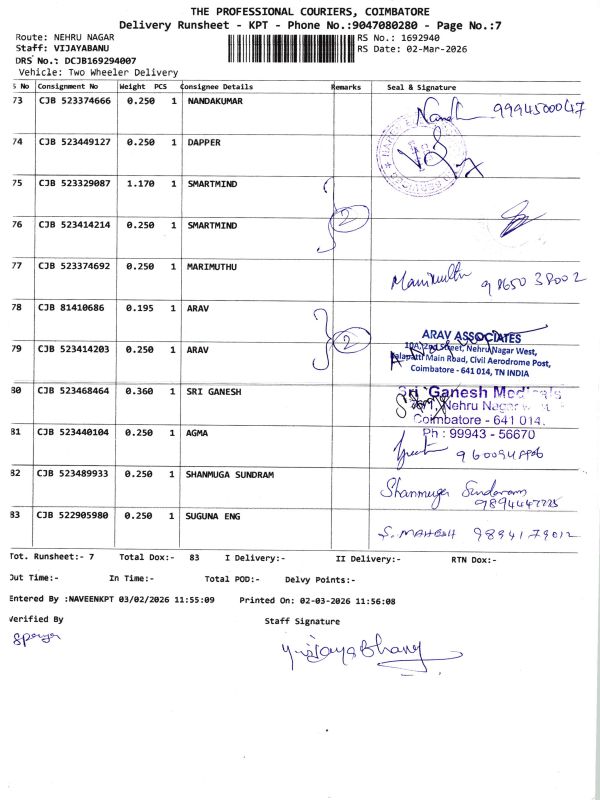 THE PROFESSIONAL COURIERS, COIMBATORE
Delivery Runsheet - KPT - Phone No.:9047080280 - Page No.:7
Route: NEHRU NAGAR
RS No.: 1692940
Staff: VIJAYABANU
RS Date: 02-Mar-2026
DRS No.: DCJB169294007
Vehicle: Two Wheeler Delivery
S No Consignment No Weight PCS Consignee Details Remarks Seal & Signature
73 CJB 523374666 0.250 1 NANDAKUMAR
74 CJB 523449127 0.250 1 DAPPER
75 CJB 523329087 1.170 1 SMARTMIND
2
76 CJB 523414214 0.250 1 SMARTMIND
77 CJB 523374692 0.250 1 MARIMUTHU Marimuthu 98650 38002
78 CJB 81410686 0.195 1 ARAV
2
ARAV ASSOCIATES
10A, 2nd Street, Nehru Nagar West,
Kalapatti Main Road, Civil Aerodrome Post,
Coimbatore - 641 014, TN INDIA
79 CJB 523414203 0.250 1 ARAV
80 CJB 523468464 0.360 1 SRI GANESH
Sri Ganesh Medicals
Nehru Nagar
Coimbatore - 641 014.
Ph : 99943 - 56670
81 CJB 523440104 0.250 1 AGMA
82 CJB 523489933 0.250 1 SHANMUGA SUNDRAM Shanmuga Sundaram
83 CJB 522905980 0.250 1 SUGUNA ENG S. MAHESH 98941 79012
Tot. Runsheet:- 7 Total Dox:- 83 I Delivery:- II Delivery:- RTN Dox:-
Out Time:- In Time:- Total POD:- Delvy Points:-
Entered By :NAVEENKPT 03/02/2026 11:55:09 Printed On: 02-03-2026 11:56:08
Verified By Staff Signature